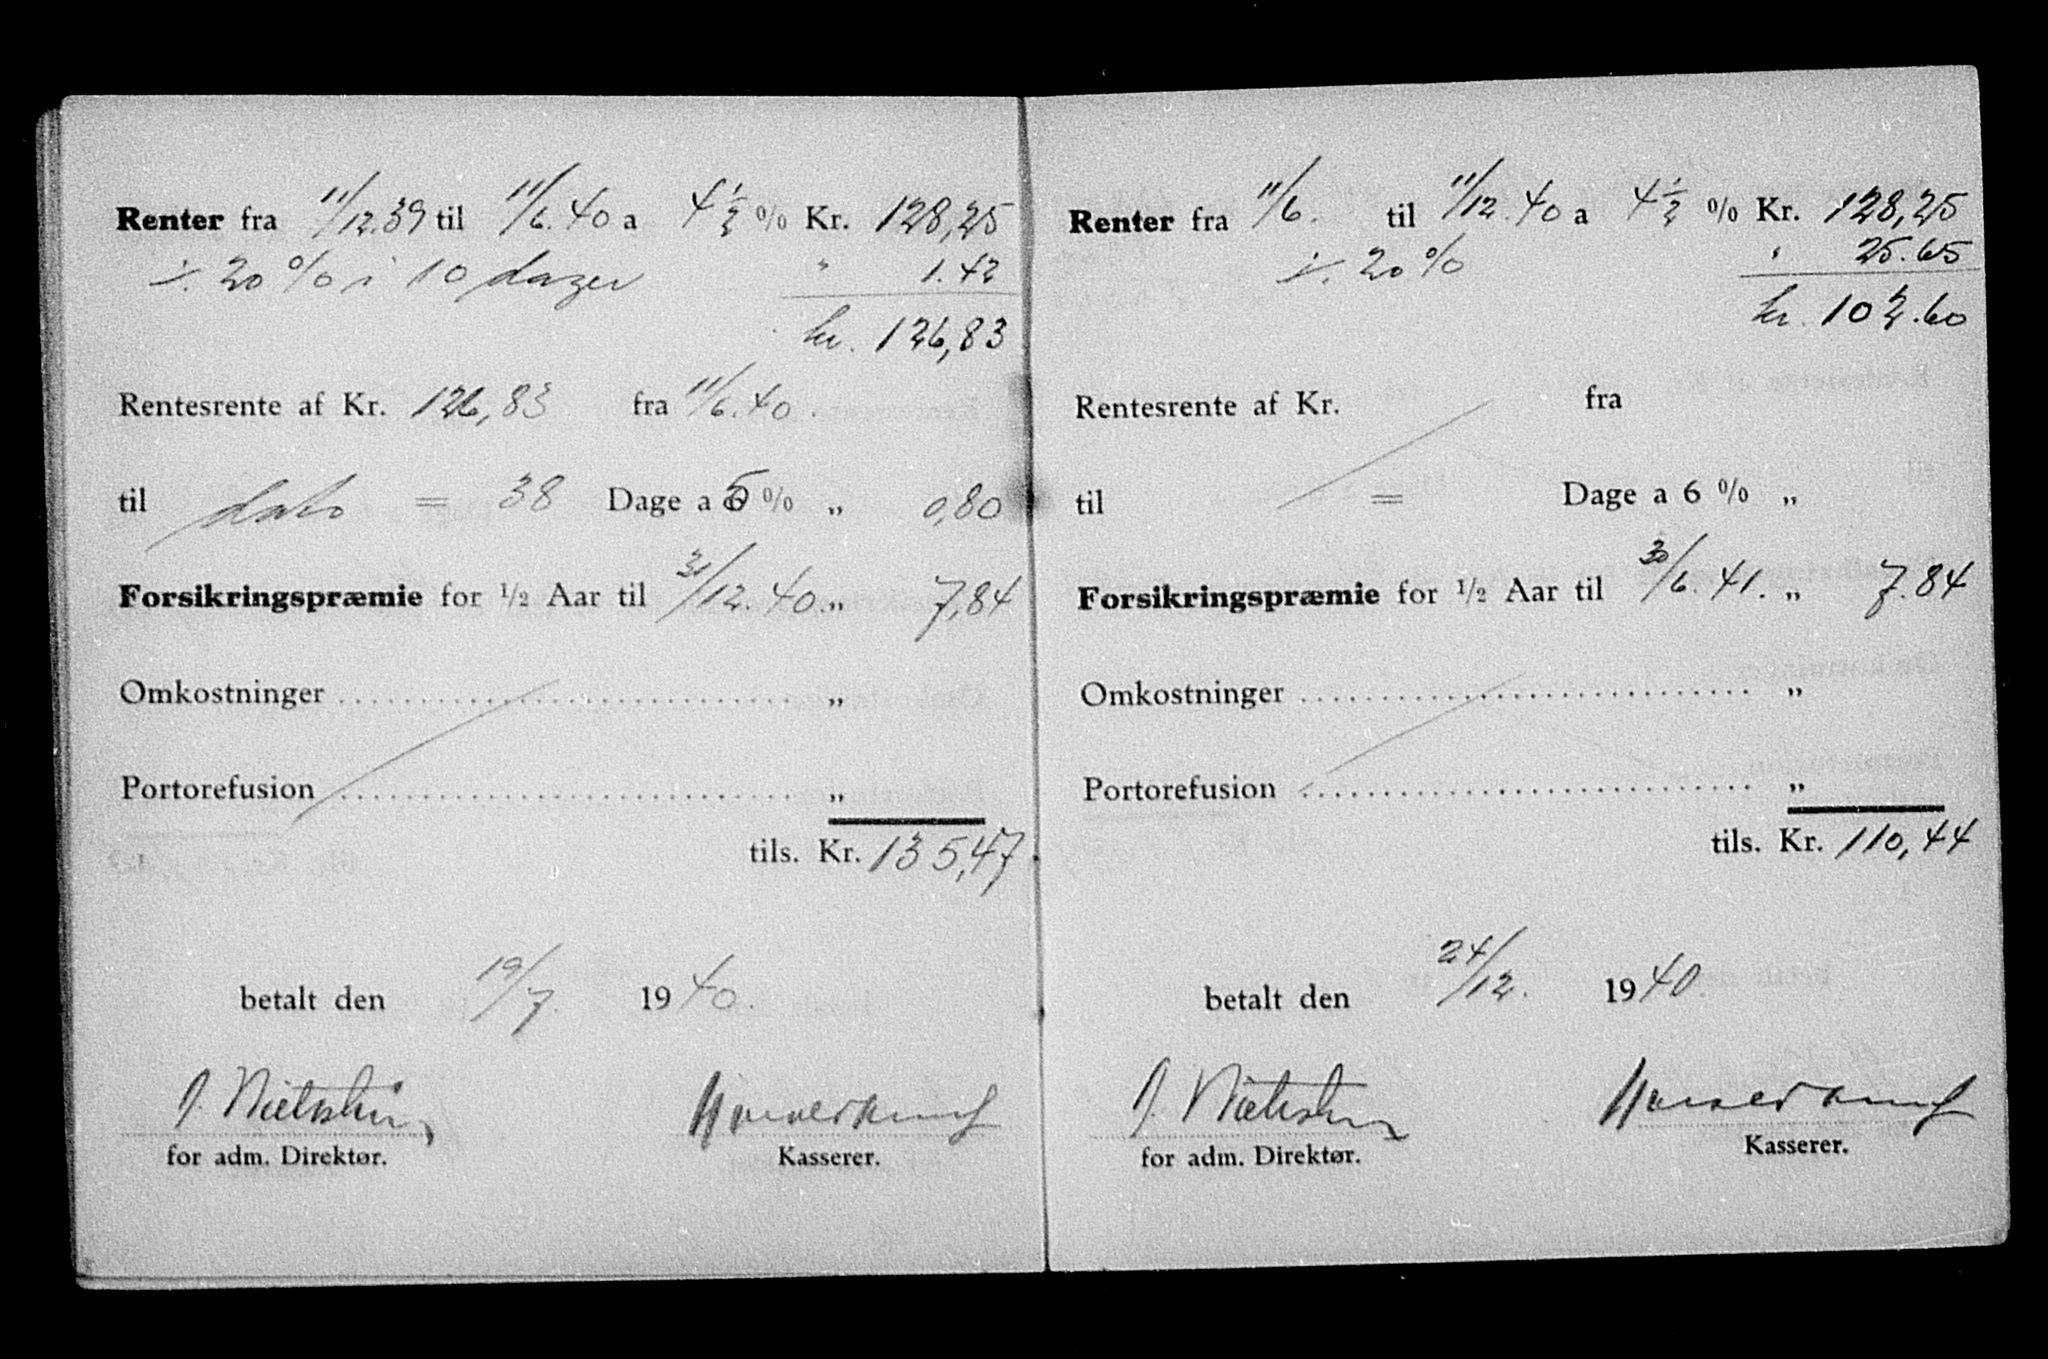 Renter fra 11/12.39 til 11/6.40 a 4½ % Kr. 128,25
÷ 20 % i 10 dager " 1.42
kr. 126,83
Rentesrente af Kr. 126,83 fra 11/6.40.
til dato = 38 Dage a 6 % „ 0,80
Forsikringspræmie for ½ Aar til 31/12.40. „ 7,84
Omkostninger „
Portorefusion „
tils. Kr. 135,47
betalt den 19/7. 1940.
for adm. Direktør. Kasserer.
Renter fra 11/6. til 11/12.40 a 4½ % Kr. 128,25
÷ 20 % " 25.65
kr. 102.60
Rentesrente af Kr. fra
til = Dage a 6 % „
Forsikringspræmie for ½ Aar til 30/6.41. „ 7.84
Omkostninger „
Portorefusion „
tils. Kr. 110,44
betalt den 24/12. 1940.
for adm. Direktør. Kasserer.